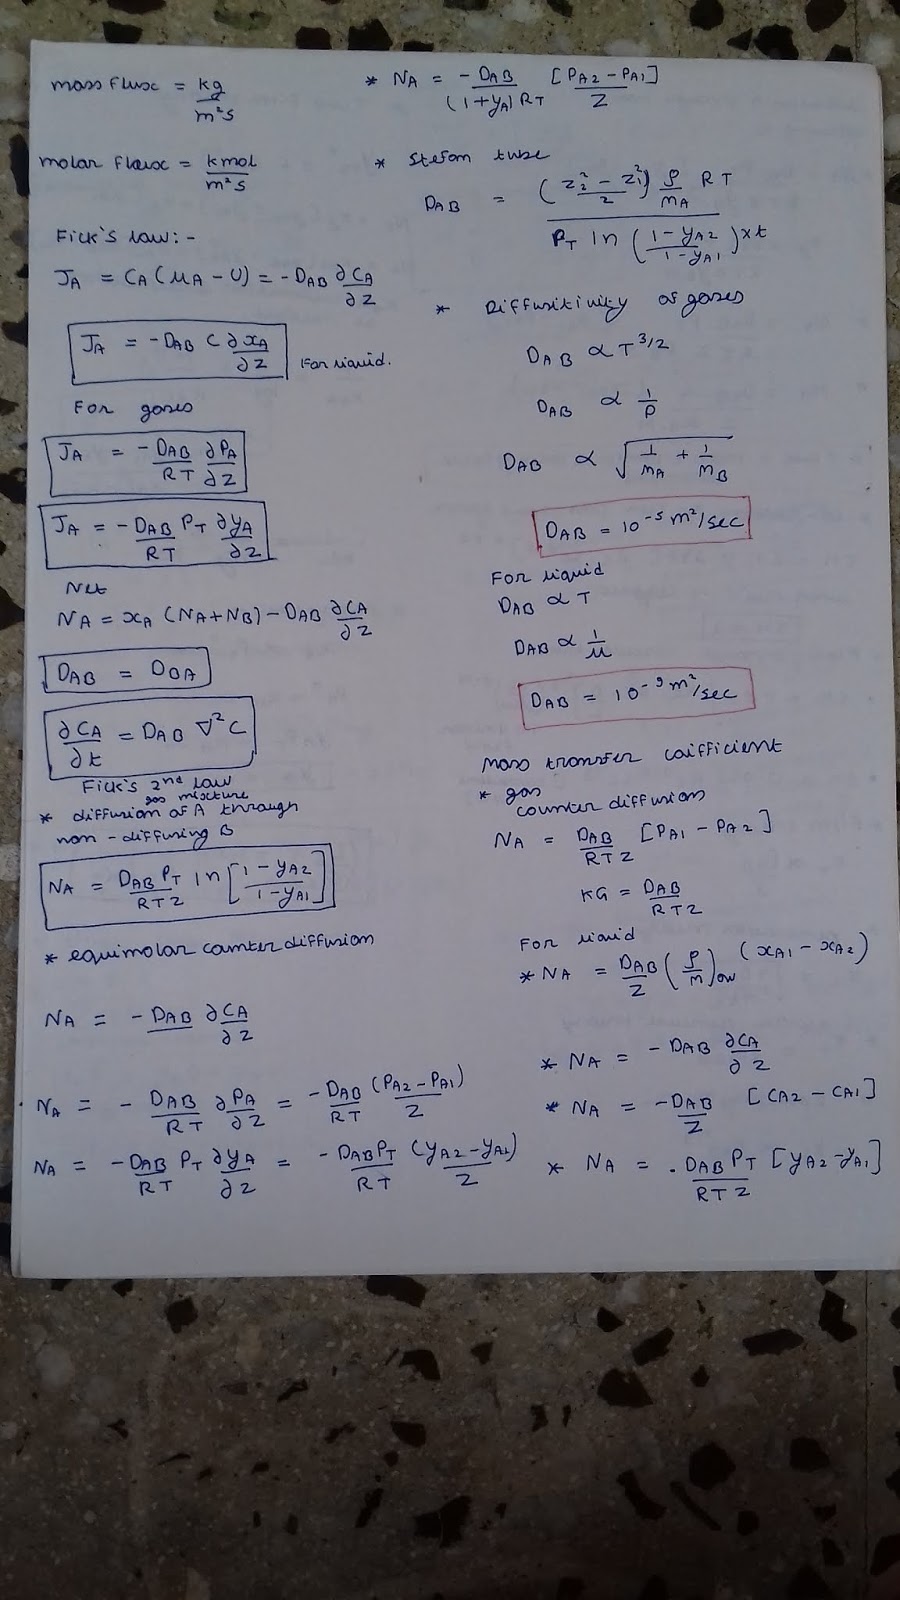 mass flux = kg/m²s
molar flux = kmol/m²s
Fick's law:-
J_A = C_A (u_A - U) = -D_AB ∂C_A/∂z
J_A = -D_AB C ∂x_A/∂z For liquid.
For gases
J_A = -D_AB/RT ∂P_A/∂z
J_A = -D_AB P_T/RT ∂y_A/∂z
Net
N_A = x_A (N_A + N_B) - D_AB ∂C_A/∂z
D_AB = D_BA
∂C_A/∂t = D_AB ∇²C
Fick's 2nd law
gas mixture
* diffusion of A through
non-diffusing B
N_A = D_AB P_T/RTZ ln [1-y_A2/1-y_A1]
* equimolar counter diffusion
N_A = -D_AB ∂C_A/∂z
N_A = -D_AB/RT ∂P_A/∂z = -D_AB/RT (P_A2 - P_A1)/Z
N_A = -D_AB P_T/RT ∂y_A/∂z = -D_AB P_T/RT (y_A2 - y_A1)/Z
* N_A = -D_AB/(1+y_A)RT [P_A2 - P_A1]/Z
* Stefan tube
D_AB = (z_2² - z_1²/2) ρ/M_A RT / P_T ln (1-y_A2/1-y_A1) × t
* Diffusitivity of gases
D_AB ∝ T^3/2
D_AB ∝ 1/P
D_AB ∝ √(1/M_A + 1/M_B)
D_AB = 10⁻⁵ m²/sec
For liquid
D_AB ∝ T
D_AB ∝ 1/μ
D_AB = 10⁻⁹ m²/sec
Mass transfer coifficient
* gas
counter diffusion
N_A = D_AB/RTZ [P_A1 - P_A2]
KG = D_AB/RTZ
For liquid
* N_A = D_AB/Z (ρ/m) (x_A1 - x_A2)
* N_A = -D_AB ∂C_A/∂z
* N_A = -D_AB/Z [C_A2 - C_A1]
* N_A = . D_AB P_T/RTZ [y_A2 - y_A1]